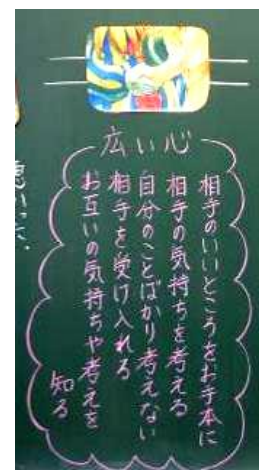 広い心
相手のいいところをお手本に
相手の気持ちを考える
自分のことばかり考えない
相手を受け入れる
お互いの気持ちや考えを
知る